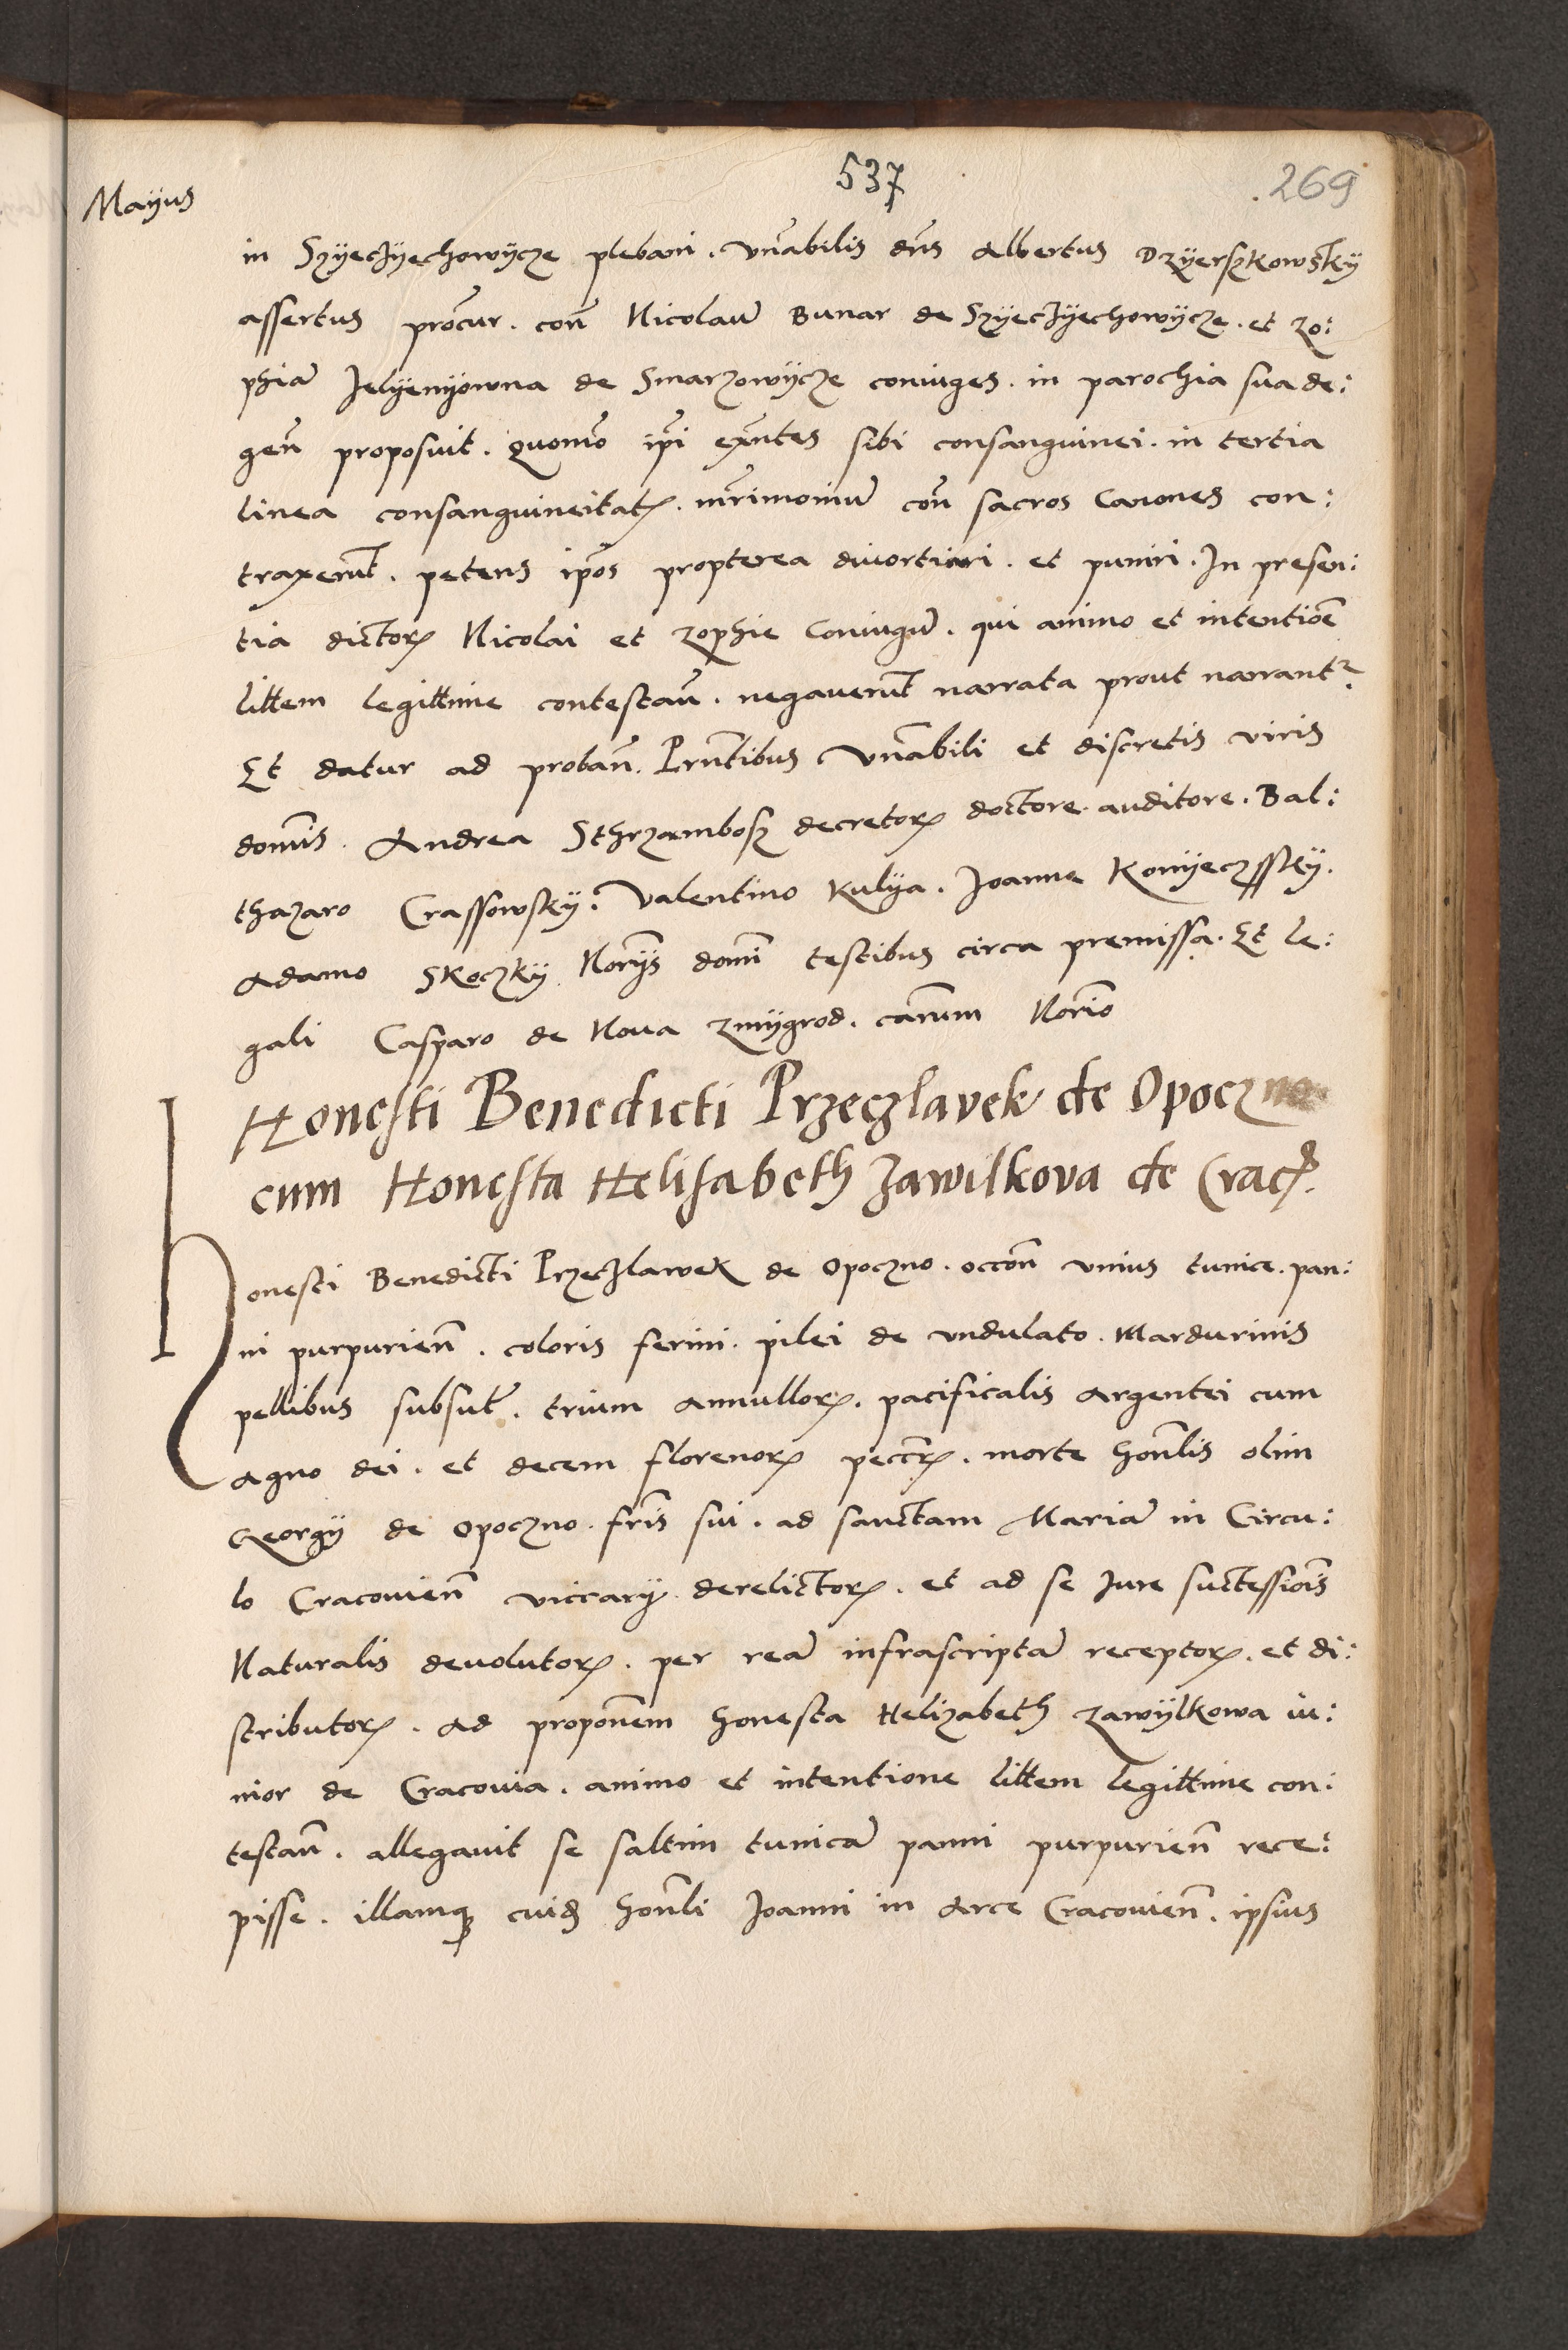 537
269
Mayus
in Szyeczyechowycze plebani . vnabilis dns Albertus Dzyerszkowsky
assertus procur . con Nicolau Bunar de Szyeczyechowycze . et zo:
phia Jelyenyowna de Smarzowycze coniuges . in parochia sua de:
gen proposuit . quomo ipi exntes sibi consanguinei . in tertia
linea consanguineitat . mrimoniu con sacros Canones con:
traxerut . petens ipos propterea diuortiari . et puniri . In presen:
tia dictor Nicolai et zophie Coniugu . qui animo et intentioe
littem legittime contestan . negauerut narrata prout narrant
Et datur ad proban . Prntibus vnabili et discretis viris
domis . Andrea Sthrzambosz decretor doctore auditore . Bal:
thazaro Crassowsky . Valentino Kulya . Joanne Konyeczssky .
Adamo Skoczky Norys domi testibus circa premissa . Et le:
gali Casparo de Noua zmygrod . carum Norio
Honesti Benedicti Przeczlavek de Opoczno
cum Honesta Helisabeth Zawilkova de Crac
Honesti Benedicti Przeczlawek de Opoczno . occon vnius tunice . pan:
ni purpurien . coloris ferini . pilei de vndulato . Mardurinis
pellibus subsut . trium annullor . pacificalis argentei cum
agno dei . et decem florenor peccr . morte honlis olim
Georgy de Opoczno . fris sui . ad sanctam Maria in Circu:
lo Cracouien viccary derelictor . et ad se Jure successiois
Naturalis deuolutor . per rea infrascripta receptor . et di:
stributor . Ad proponem honesta Helizabeth zawylkowa iu:
nior de Cracouia . animo et intentione littem legittime con:
testan . allegauit se saltim tunica panni purpurien rece:
pisse . illamq cuid honli Joanni in Arce Cracouien . ipsius